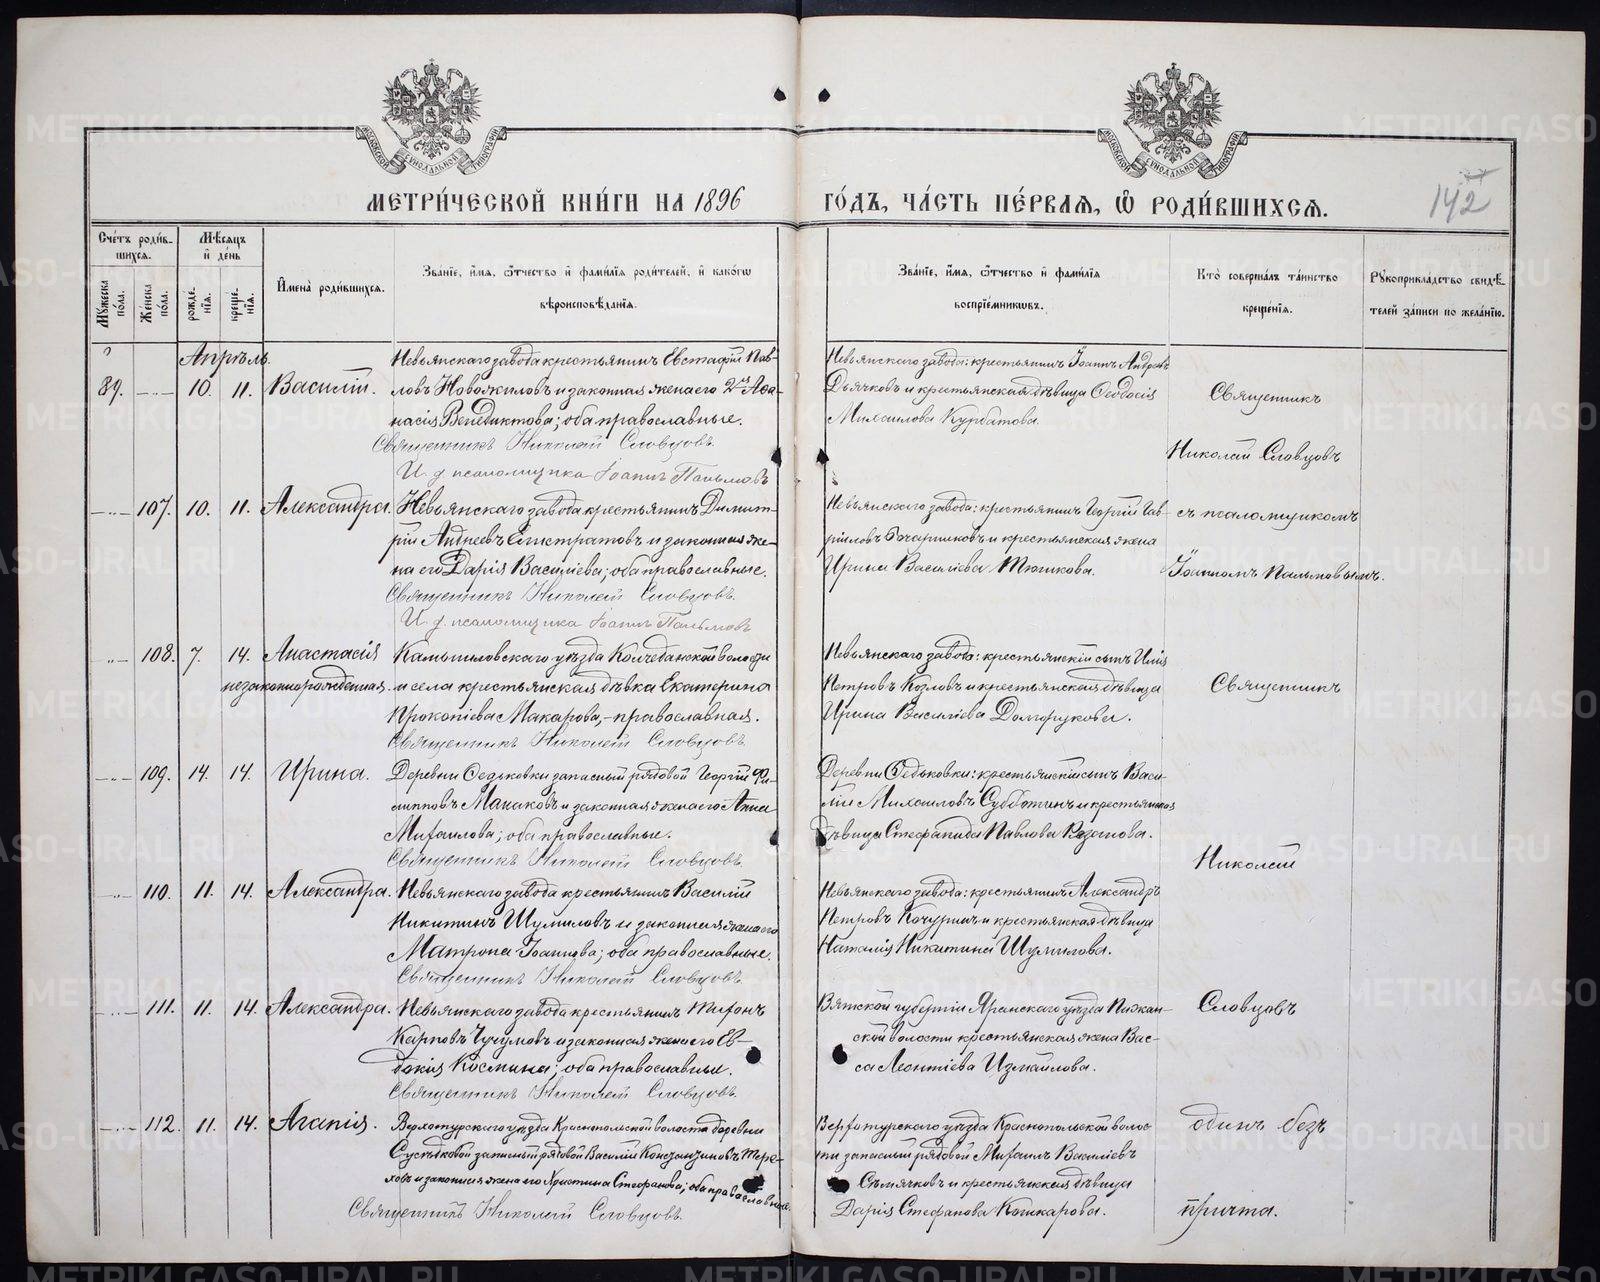 МОСКОВСКОЙ СѴНОДАЛЬНОЙ ТИПОГРАФІИ
МОСКОВСКОЙ СѴНОДАЛЬНОЙ ТИПОГРАФІИ
МЕТРИ́ЧЕСКОЙ КНИ́ГИ НА 1896
ГО́ДЪ, ЧА́СТЬ ПЕ́РВАЯ, Ѡ҆ РОДИ́ВШИХСЯ.
142
Сче́тъ роди́в-
шихся.
Мѣ́сяцъ
и҆ де́нь
Мꙋжеска
по́ла.
Женска
по́ла.
рожде-
нїѧ.
креще-
нїѧ.
И҆мена̀ роди́вшихся.
Зва́нїе, и҆́мя, ѻ҆́тчество и҆ фами́лїя роди́телей, и҆ како́гѡ
вѣроисповѣ́данїя.
Зва́нїе, и҆́мя, ѻ҆́тчество и҆ фами́лїя
воспрїе́мникѡвъ.
Кто̀ соверша́лъ та́инство
креще́нїя.
Рꙋкоприкла́дство свидѣ́-
телей за́писи по жела́нїю.
Апрѣль.
89. 10. 11. Василій.
Невьянскаго завода крестьянинъ Евстафій Пав-
ловъ Новожиловъ и законная жена его 2го Афа-
насія Венедиктова; оба православные.
Священникъ Николай Словцовъ.
И. д. псаломщика Іоаннъ Пальмовъ
Невьянскаго завода: крестьянинъ Іоаннъ Андреевъ
Дьячковъ и крестьянская дѣвица Ѳеодосія
Михаилова Курбатова.
Священникъ
Николай Словцовъ
107. 10. 11. Александра.
Невьянскаго завода крестьянинъ Димит-
рій Андреевъ Елистратовъ и законная же-
на его Дарія Василіева; оба православные.
Священникъ Николай Словцовъ.
И. д. псаломщика Іоаннъ Пальмовъ
Невьянскаго завода: крестьянинъ Георгій Гав-
ріиловъ и крестьянская жена
Ирина Василіева Тюшкова.
съ псаломщикомъ
Іоанномъ Пальмовымъ.
108. 7. 14. Анастасія
незаконнорожденная.
Камышловскаго уѣзда Колчеданской волости
и села крестьянская дѣвка Екатерина
Прокопіева Макарова, - православная.
Священникъ Николай Словцовъ
Невьянскаго завода: крестьянскій сынъ Илія
Петровъ Козловъ и крестьянская дѣвица
Ирина Василіева Долгорукова.
Священникъ
109. 14. 14. Ирина.
Деревни Ѳедьковки запасный рядовой Георгій Фи-
липповъ Манаковъ и законная жена его Анна
Михаилова; оба православные.
Священникъ Николай Словцовъ
Деревни Ѳедьковки: крестьянскій сынъ Васи-
лій Михаиловъ Субботинъ и крестьянская
дѣвица Стефанида Павлова Казанова.
Николай
110. 11. 14. Александра.
Невьянскаго завода крестьянинъ Василій
Никитинъ Шумиловъ и законная жена его
Матрона Іоаннова; оба православные.
Священникъ Николай Словцовъ
Невьянскаго завода: крестьянинъ Александръ
Петровъ Кочуринъ и крестьянская дѣвица
Наталія Никитина Шумилова.
111. 11. 14. Александра.
Невьянскаго завода крестьянинъ Тифонъ
Карповъ Чучумовъ и законная жена его Ев-
докія Космина; оба православные.
Священникъ Николай Словцовъ.
Вятской губерніи Яранскаго уѣзда Пижан-
ской волости крестьянская жена Вас-
са Леонтіева Измайлова.
Словцовъ
112. 11. 14. Агапія.
Верхотурскаго уѣзда Краснопольской волости деревни
запасный рядовой Василій Константиновъ Тере-
ховъ и законная жена его Христина Стефанова; оба православные.
Священникъ Николай Словцовъ.
Верхотурскаго уѣзда Краснопольской волос-
ти запасный рядовой Михаилъ Василіевъ
и крестьянская дѣвица
Дарія Стефанова Кошкарова.
одинъ безъ
причта.
METRIKI.GASO-URAL.RU